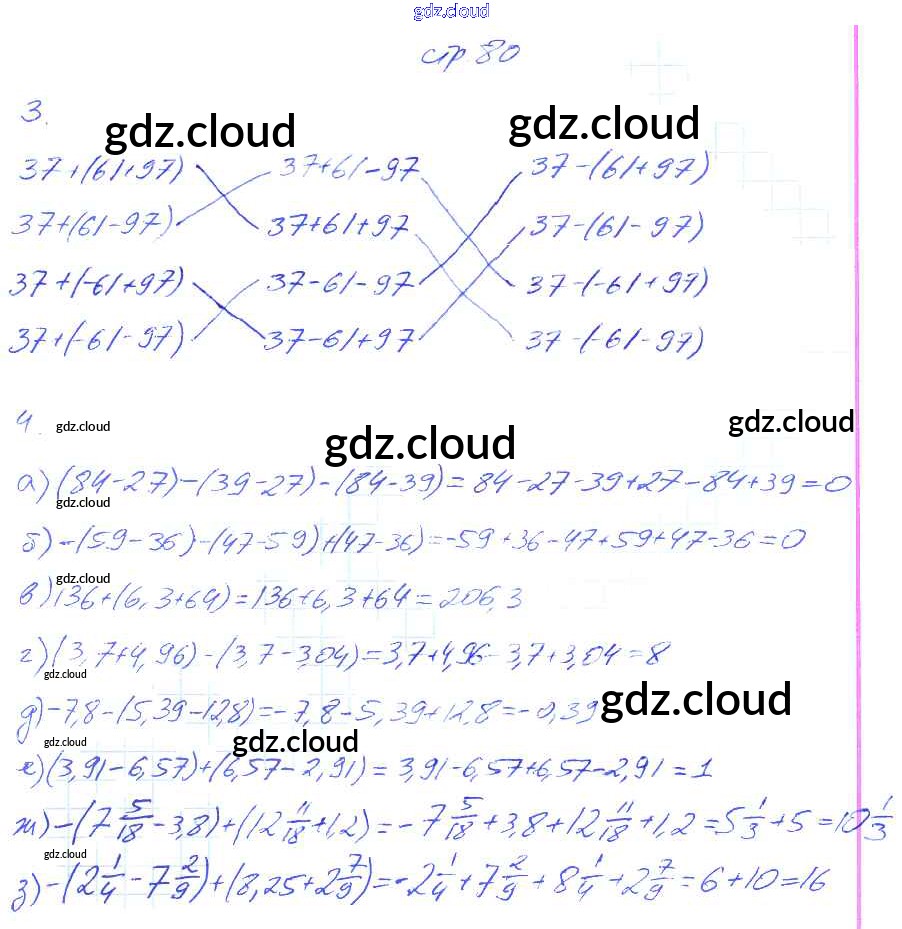 gdz.cloud
стр 80
3.
gdz.cloud gdz.cloud
37+(61+97) 37+61-97 37-(61+97)
37+(61-97) 37+61+97 37-(61-97)
37+(-61+97) 37-61-97 37-(-61+97)
37+(-61-97) 37-61+97 37-(-61-97)
4. gdz.cloud gdz.cloud gdz.cloud
а) (84-27)-(39-27)-(84-39)=84-27-39+27-84+39=0
gdz.cloud
б) -(59-36)-(47-59)+(47-36)=-59+36-47+59+47-36=0
gdz.cloud
в) 136+(6,3+64)=136+6,3+64=206,3
г) (3,7+4,96)-(3,7-3,04)=3,7+4,96-3,7+3,04=8
gdz.cloud gdz.cloud
д) -7,8-(5,39-12,8)=-7,8-5,39+12,8=-0,39
gdz.cloud gdz.cloud
е) (3,91-6,57)+(6,57-2,91)=3,91-6,57+6,57-2,91=1
ж) -(7 5/18-3,8)+(12 11/18+1,2)=-7 5/18+3,8+12 11/18+1,2=5 1/3+5=10 1/3
gdz.cloud
з) -(2 1/4-7 2/9)+(8,25+2 7/9)=-2 1/4+7 2/9+8 1/4+2 7/9=6+10=16